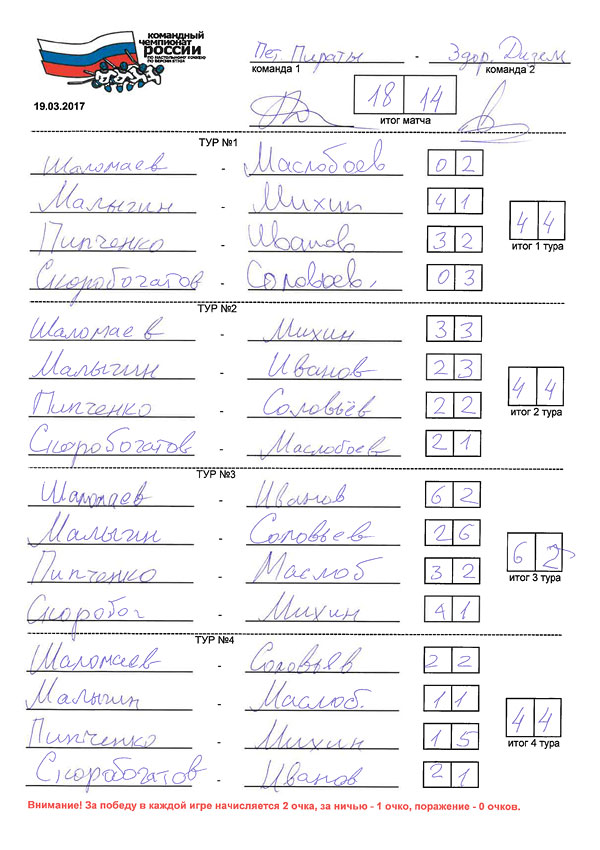 КОМАНДНЫЙ
ЧЕМПИОНАТ
РОССИИ
ПО НАСТОЛЬНОМУ ХОККЕЮ
ПО ВЕРСИИ STIGA
Пет Пираты - Здор. Дизем
команда 1 команда 2
19.03.2017
18 14
итог матча
ТУР №1
Шаломаев - Маслобоев 0 2
Малыгин - Михин 4 1
Пипченко - Иванов 3 2
Скоробогатов - Соловьев. 0 3
4 4
итог 1 тура
ТУР №2
Шаломаев - Михин 3 3
Малыгин - Иванов 2 3
Пипченко - Соловьёв 2 2
Скоробогатов - Маслобоев 2 1
4 4
итог 2 тура
ТУР №3
Шаломаев - Иванов 6 2
Малыгин - Соловьев 2 6
Пипченко - Маслоб 3 2
Скоробог - Михин 4 1
6 2
итог 3 тура
ТУР №4
Шаломаев - Соловьёв 2 2
Малыгин - Маслоб. 1 1
Пипченко - Михин 1 5
Скоробогатов - Иванов 2 1
4 4
итог 4 тура
Внимание! За победу в каждой игре начисляется 2 очка, за ничью - 1 очко, поражение - 0 очков.